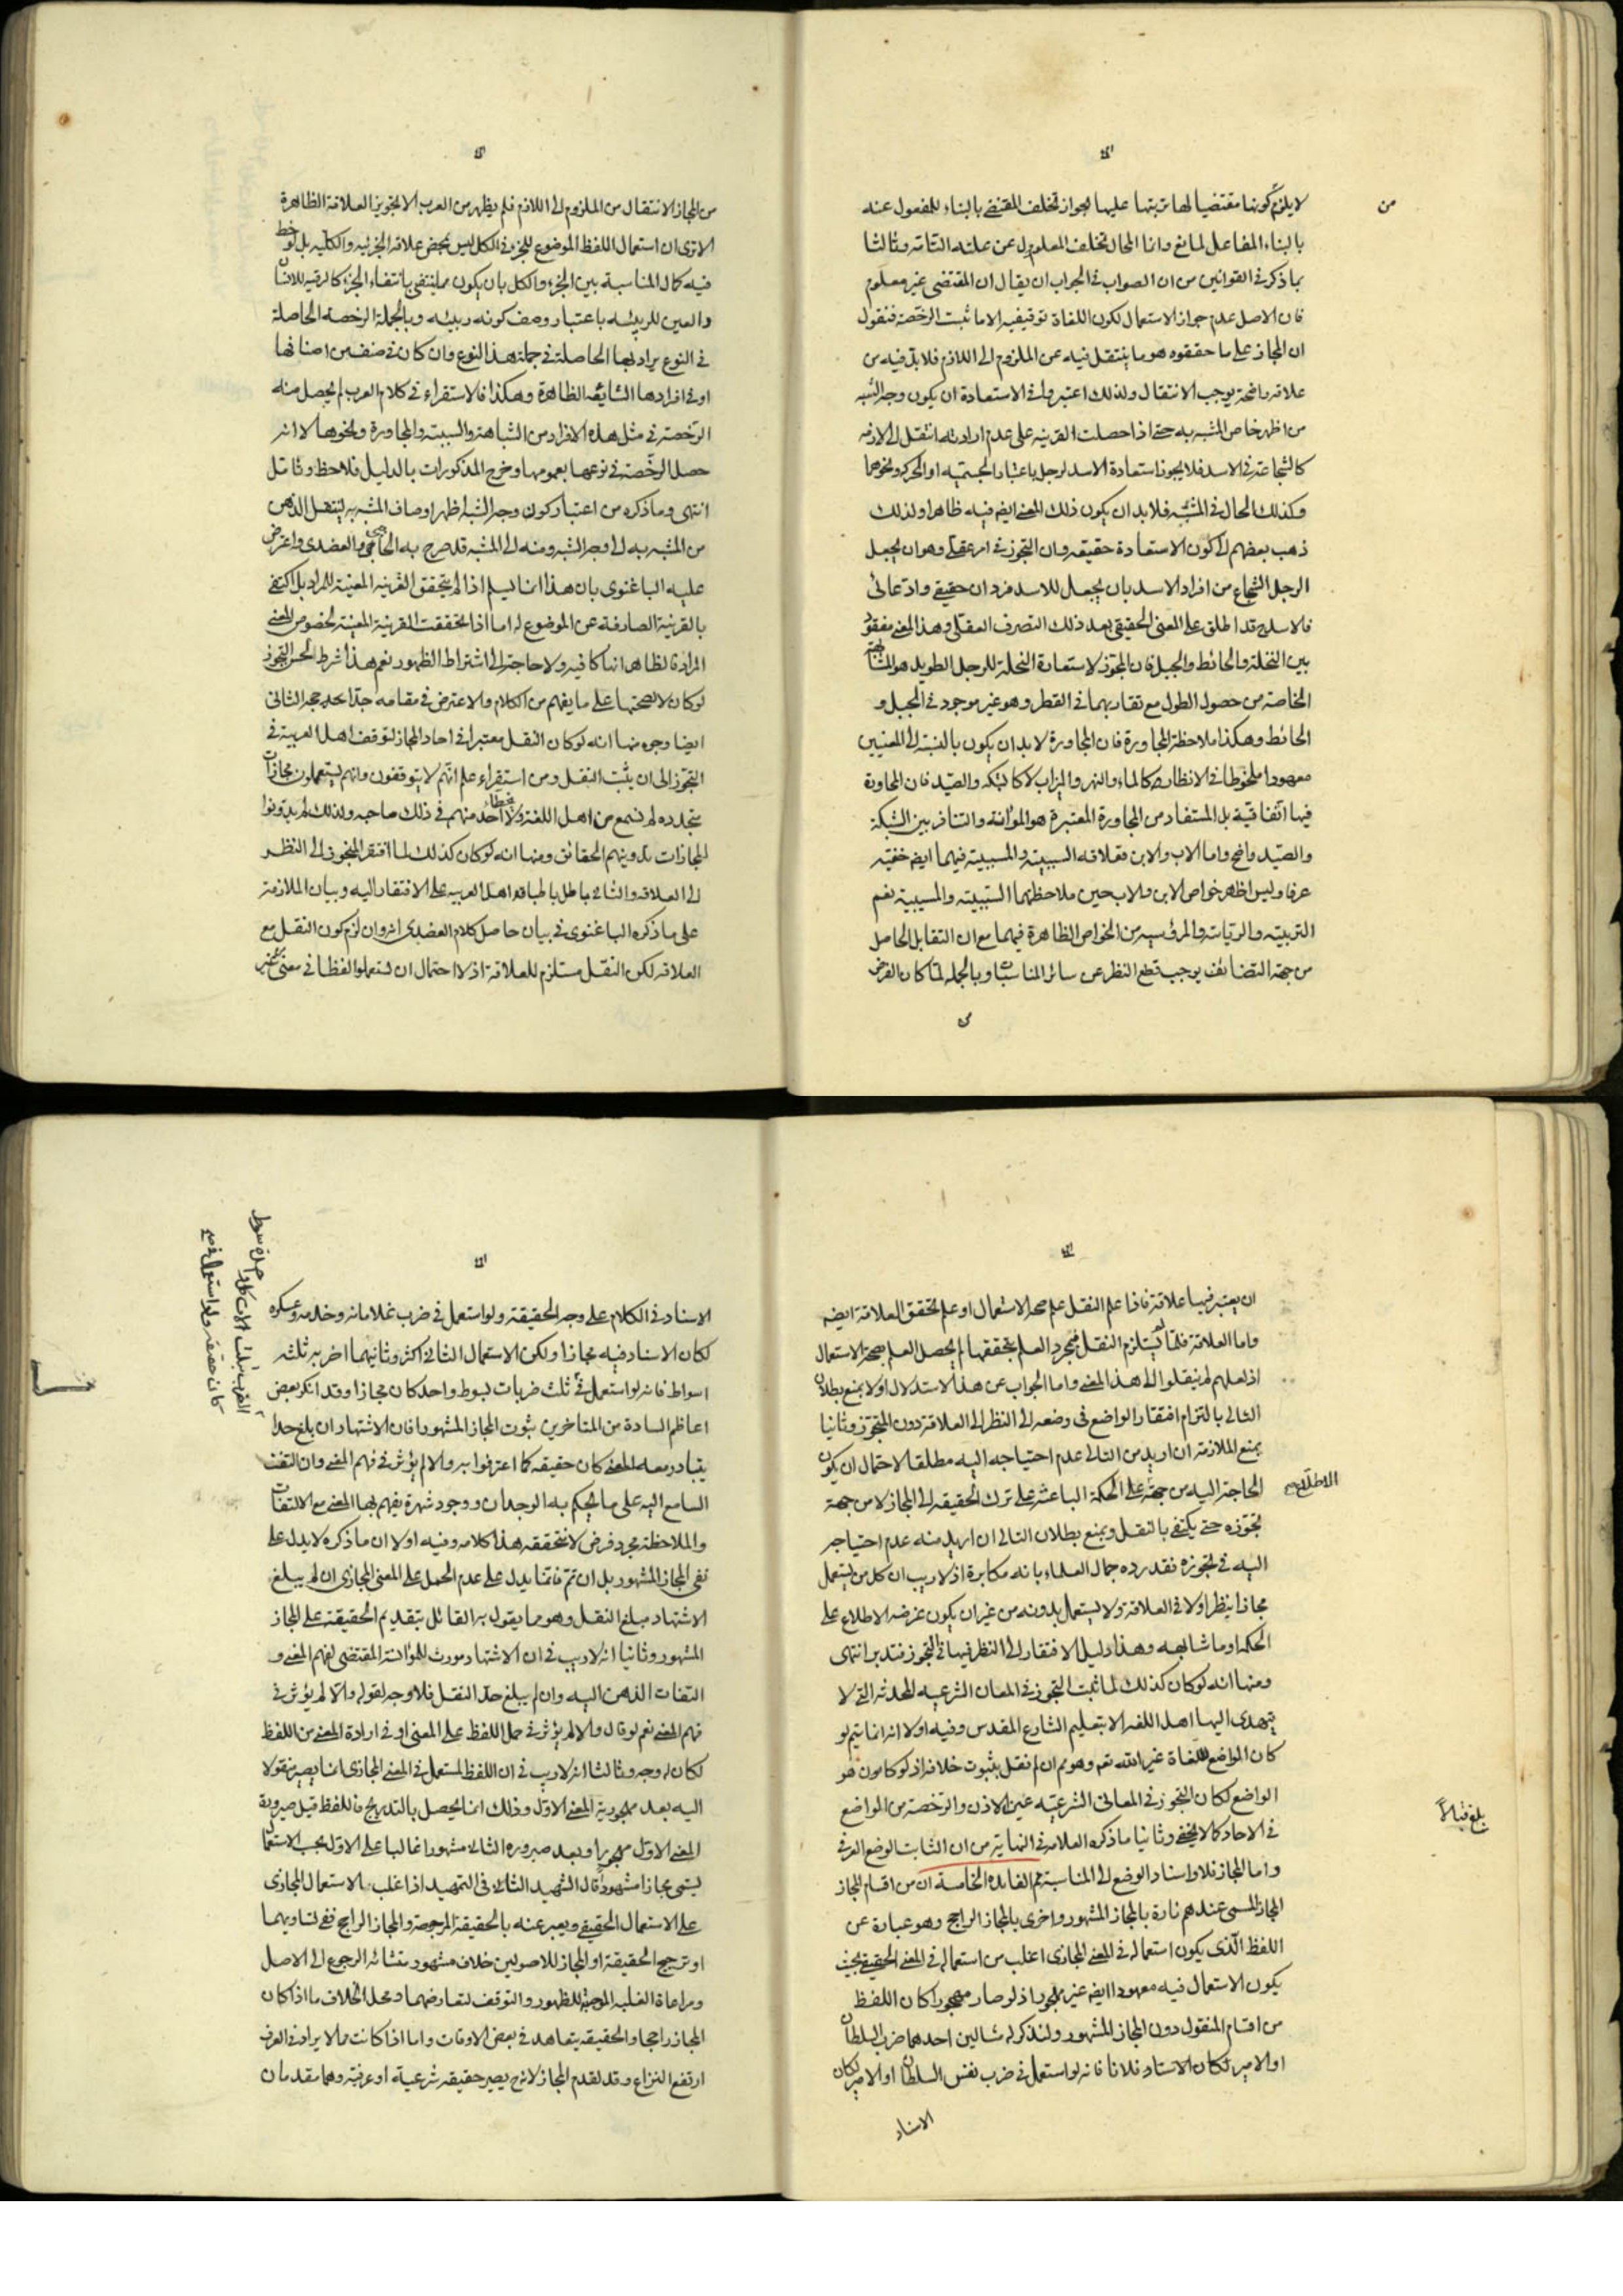 لا يلزم كونها مقتضيا لها ترتبها عليها لجواز تخلف المقتضى بالبناء للمفعول عنه
بالبناء للفاعل لمانع وانا المحال تخلف المعلول عن علته التامة وثالثا
بما ذكر فى القوانين من ان الصواب فى الجواب ان يقال ان المقتضى غير معلوم
فان الاصل عدم جواز الاستعمال لكون اللغات توقيفيه الا ما ثبت الرخصة فنقول
ان المجاز على ما حققوه هو ما ينتقل فيه عن الملزوم الى اللازم فلا بد فيه من
علاقه واضحة يوجب الانتقال ولذلك اعتبروا فى الاستعارة ان يكون وجه الشبه
من اظهر خواص المشبه به حتى اذا حصلت القرينه على عدم ارادته انتقل الى لازمه
كالشجاعة فى الاسد فلا يجوز استعارة الاسد لرجل باعتبار الجسميه او الحركه ونحوهما
وكذلك الحال فى المشبه فلا بد ان يكون ذلك المعنى ايضه فيه ظاهرا ولذلك
ذهب بعضهم الى كون الاستعارة حقيقه وان التجوز فى امر عقلى وهو ان يجعل
الرجل الشجاع من افراد الاسد بان يجعل للاسد فردان حقيقى وادعائى
فالاسد قد اطلق على المعنى الحقيقى بعد ذلك التصرف العقلى وهذا المعنى مفقود
بين النخلة والحائط والجبل فان المجوز لاستعارة النخلة للرجل الطويل هو المشابهة
الخاصة من حصول الطول مع تقاربهما فى القطر وهو غير موجود فى الجبل و
الحائط وهكذا ملاحظة المجاورة فان المجاورة لا بد ان يكون بالنسبة الى المعنيين
معهودا ملحوظا فى الانظار كالماء والنهر والميزاب لا كالشبكه والصيد فان المجاورة
فيها اتفاقية بل المستفاد من المجاورة المعتبرة هو المؤانسة والتنافر بين الشبكة
والصيد واضح واما الاب والابن فعلاقه السببية والمسببية فيهما ايضه خفيه
عرفا وليس اظهر خواص الابن والاب حين ملاحظتهما السببية والمسببية نعم
التربيته والرياسة والمرؤسيه من الخواص الظاهرة فيهما مع ان التقابل الحاصل
من جهة التضايف يوجب قطع النظر عن سائر المناسبات وبالجمله لما كان الغرض
من
من المجاز الانتقال من الملزوم الى اللازم فلم يظهر من العرب الا تجويز العلاقة الظاهرة
الا ترى ان استعمال اللفظ الموضوع للجزء فى الكل ليس بمحض علاقه الجزئيه والكليه بل لوحظ
فيه كمال المناسبة بين الجزء والكل بان يكون مما ينتفى بانتفاء الجزء كالرقبه للانسان
والعين للربيئه باعتبار وصف كونه ربيئه وبالجملة الرخصه الحاصلة
فى النوع يراد بها الحاصلة فى جملة هذا النوع وان كان فى صنف من اصنافها
او فى افرادها الشايعه الظاهرة وهكذا فالاستقراء فى كلام العرب لم يحصل منه
الرخصة فى مثل هذه الافراد من الشباهة والسببيته والمجاورة ونحوها لا انه
حصل الرخصة فى نوعها بعمومها وخرج المذكورات بالدليل فلاحظ وتامل
انتهى وما ذكره من اعتبار كون وجه الشبه اظهر اوصاف المشبه به لينتقل الذهن
من المشبه به الى وجه الشبه ومنه الى المشبه قد صرح به الحاجبى والعضدى واعترض
عليه الباغنوى بان هذا انما يسلم اذا لم يتحقق القرينه المعينة للمراد بل اكتفى
بالقرينة الصارفة عن الموضوع له اما اذا تحققت القرينة المعينة لخصوص المعنى
المراد فالظاهر انها كافيه ولا حاجة الى اشتراط الظهور نعم هذا شرط لحسن التجوز
لو كان لا لصحتها على ما يفهم من الكلام والاعتراض فى مقامه جدا حجه الثانى
ايضا وجوه منها انه لو كان النقل معتبرا فى احاد المجاز لتوقف اهل العربية فى
التجوز الى ان يثبت النقل ومن استقراء علم انهم لا يتوقفون وانهم يستعملون مجازات
متجدده لم تسمع من اهل اللغة ولا يخطاء احد منهم فى ذلك صاحبه ولذلك لم يدونوا
المجازات تدوينهم الحقائق ومنها انه لو كان كذلك لما افتقر المتجوز الى النظر
الى العلاقه والتالى باطل باطباق اهل العربيه على الافتقار اليه وبيان الملازمة
على ما ذكره الباغنوى فى بيان حاصل كلام العضدى انه وان لزم كون النقل مع
العلاقه لكن النقل مستلزم للعلاقة اذ لا احتمال ان يستعملوا لفظا فى معنى من غير
ان يعتبر فيها علاقة فاذا علم النقل علم صحه الاستعمال او علم تحقق العلاقة ايضه
واما العلاقة فلما لم يستلزم النقل فبمجرد العلم بتحققها لم يحصل العلم بصحة الاستعمال
اذ لعلهم لم ينقلوا الى هذا المعنى واما الجواب عن هذا الاستدلال اولا بمنع بطلان
التالى بالتزام افتقار الواضع فى وضعه الى النظر الى العلاقة دون المتجوز وثانيا
بمنع الملازمة ان اريد من التالى عدم احتياجه اليه مطلقا لاحتمال ان يكون
الحاجة اليه من جهة الاطلاع على الحكمة الباعثة على ترك الحقيقه الى المجاز لا من جهة
تجوزه حتى يكتفى بالنقل وبمنع بطلان التالى ان اريد منه عدم احتياجه
اليه فى تجويزه فقد رده جمال العلماء بانه مكابرة اذ لا ريب ان كل من يستعمل
مجازا ينظر اولا فى العلاقة ولا يستعمل بدونه من غير ان يكون غرضه الاطلاع على
الحكمه او ما شابهه وهذا دليل الافتقار الى النظر فيها فى التجوز فتدبر انتهى
ومنها انه لو كان كذلك لما ثبت التجوز فى المعانى الشرعيه المحدثه التى لا
يتهدى اليها اهل اللغه الا بتعليم الشارع المقدس وفيه اولا انه انما يتم لو
كان الواضع للغاة غير الله تعه وهو مم ان لم نقل بثبوت خلافه اذ لو كان هو
الواضع لكان التجوز فى المعانى الشرعيه عين الاذن والرخصة من الواضع
فى الاحاد كما لا يخفى وثانيا ما ذكره العلامه فى النهاية من ان الثابت الوضع العرفى
واما المجاز فلا واسناد الوضع الى المناسبة ثم الفايده الخامسة ان من اقسام المجاز
المجاز المسمى عندهم تارة بالمجاز المشهور واخرى بالمجاز الراجح وهو عبارة عن
اللفظ الذى يكون استعماله فى المعنى المجازى اغلب من استعماله فى المعنى الحقيقى بحيث
يكون الاستعمال فيه معهودا ايضه غير مهجور اذ لو صار مهجورا كان اللفظ
من اقسام المنقول دون المجاز المشهور ولنذكر له مثالين احدهما ضرب السلطان
او الامير فلانا فانه لو استعمل فى ضرب نفس السلطان او الامير لكان
الاسناد
بلغ قبالاً
الاسناد فى الكلام على وجه الحقيقة ولو استعمل فى ضرب غلامانه وخدمه وعسكره
لكان الاسناد فيه مجازا ولكن الاستعمال الثانى اكثر وثانيهما اضربه ثلثه
اسواط فانه لو استعمل فى ثلث ضربات بسوط واحد كان مجازا وقد انكر بعض
اعاظم السادة من المتاخرين ثبوت المجاز المشهور فان الاشتهار ان بلغ حدا
يتبادر معه المعنى كان حقيقه كما اعترفوا به والا لم يؤثر فى فهم المعنى وان التفت
السامع اليه على ما يحكم به الوجدان ووجود شهرة يفهم بها المعنى مع الالتفات
والملاحظة مجرد فرض لا نتحققه هذا كلامه وفيه اولا ان ما ذكره لا يدل على
نفى المجاز المشهور بل ان تم فانما يدل على عدم الحمل على المعنى المجازى ان لم يبلغ
الاشتهار مبلغ النقل وهو ما يقول به القائل بتقديم الحقيقة على المجاز
المشهور وثانيا انه لا ريب فى ان الاشتهار مورث للموانسة المقتضى لفهم المعنى و
التفات الذهن اليه وان لم يبلغ حد النقل فلا وجه لقوله والا لم يؤثر فى
فهم المعنى نعم لو قال والا لم يؤثر فى حمل اللفظ على المعنى او فى ارادة المعنى من اللفظ
لكان له وجه وثالثا انه لا ريب فى ان اللفظ المستعمل فى المعنى المجازى انما يصير منقولا
اليه بعد مهجورية المعنى الاول وذلك انما يحصل بالتدريج فاللفظ قبل صيرورة
المعنى الاول مهجورا وبعد صيروره الثانى مشهورا غالبا على الاول بحسب الاستعمال
يسمى مجازا مشهورا قال الشهيد الثانى فى التمهيد اذا غلب الاستعمال المجازى
على الاستعمال الحقيقى ويعبر عنه بالحقيقة المرجوحة والمجاز الراجح ففى تساويهما
او ترجيح الحقيقة او المجاز للاصوليين خلاف مشهور منشائه الرجوع الى الاصل
ومراعاة الغلبه الموجبة للظهور والتوقف لتعارضهما ومحل الخلاف ما اذا كان
المجاز راجحا والحقيقه يتعاهد فى بعض الاوقات واما اذا كانت مما لا يراد فى العرف
ارتفع النزاع وقد لقدم المجاز لانه يصير حقيقه شرعية او عرفية وهما مقدمان